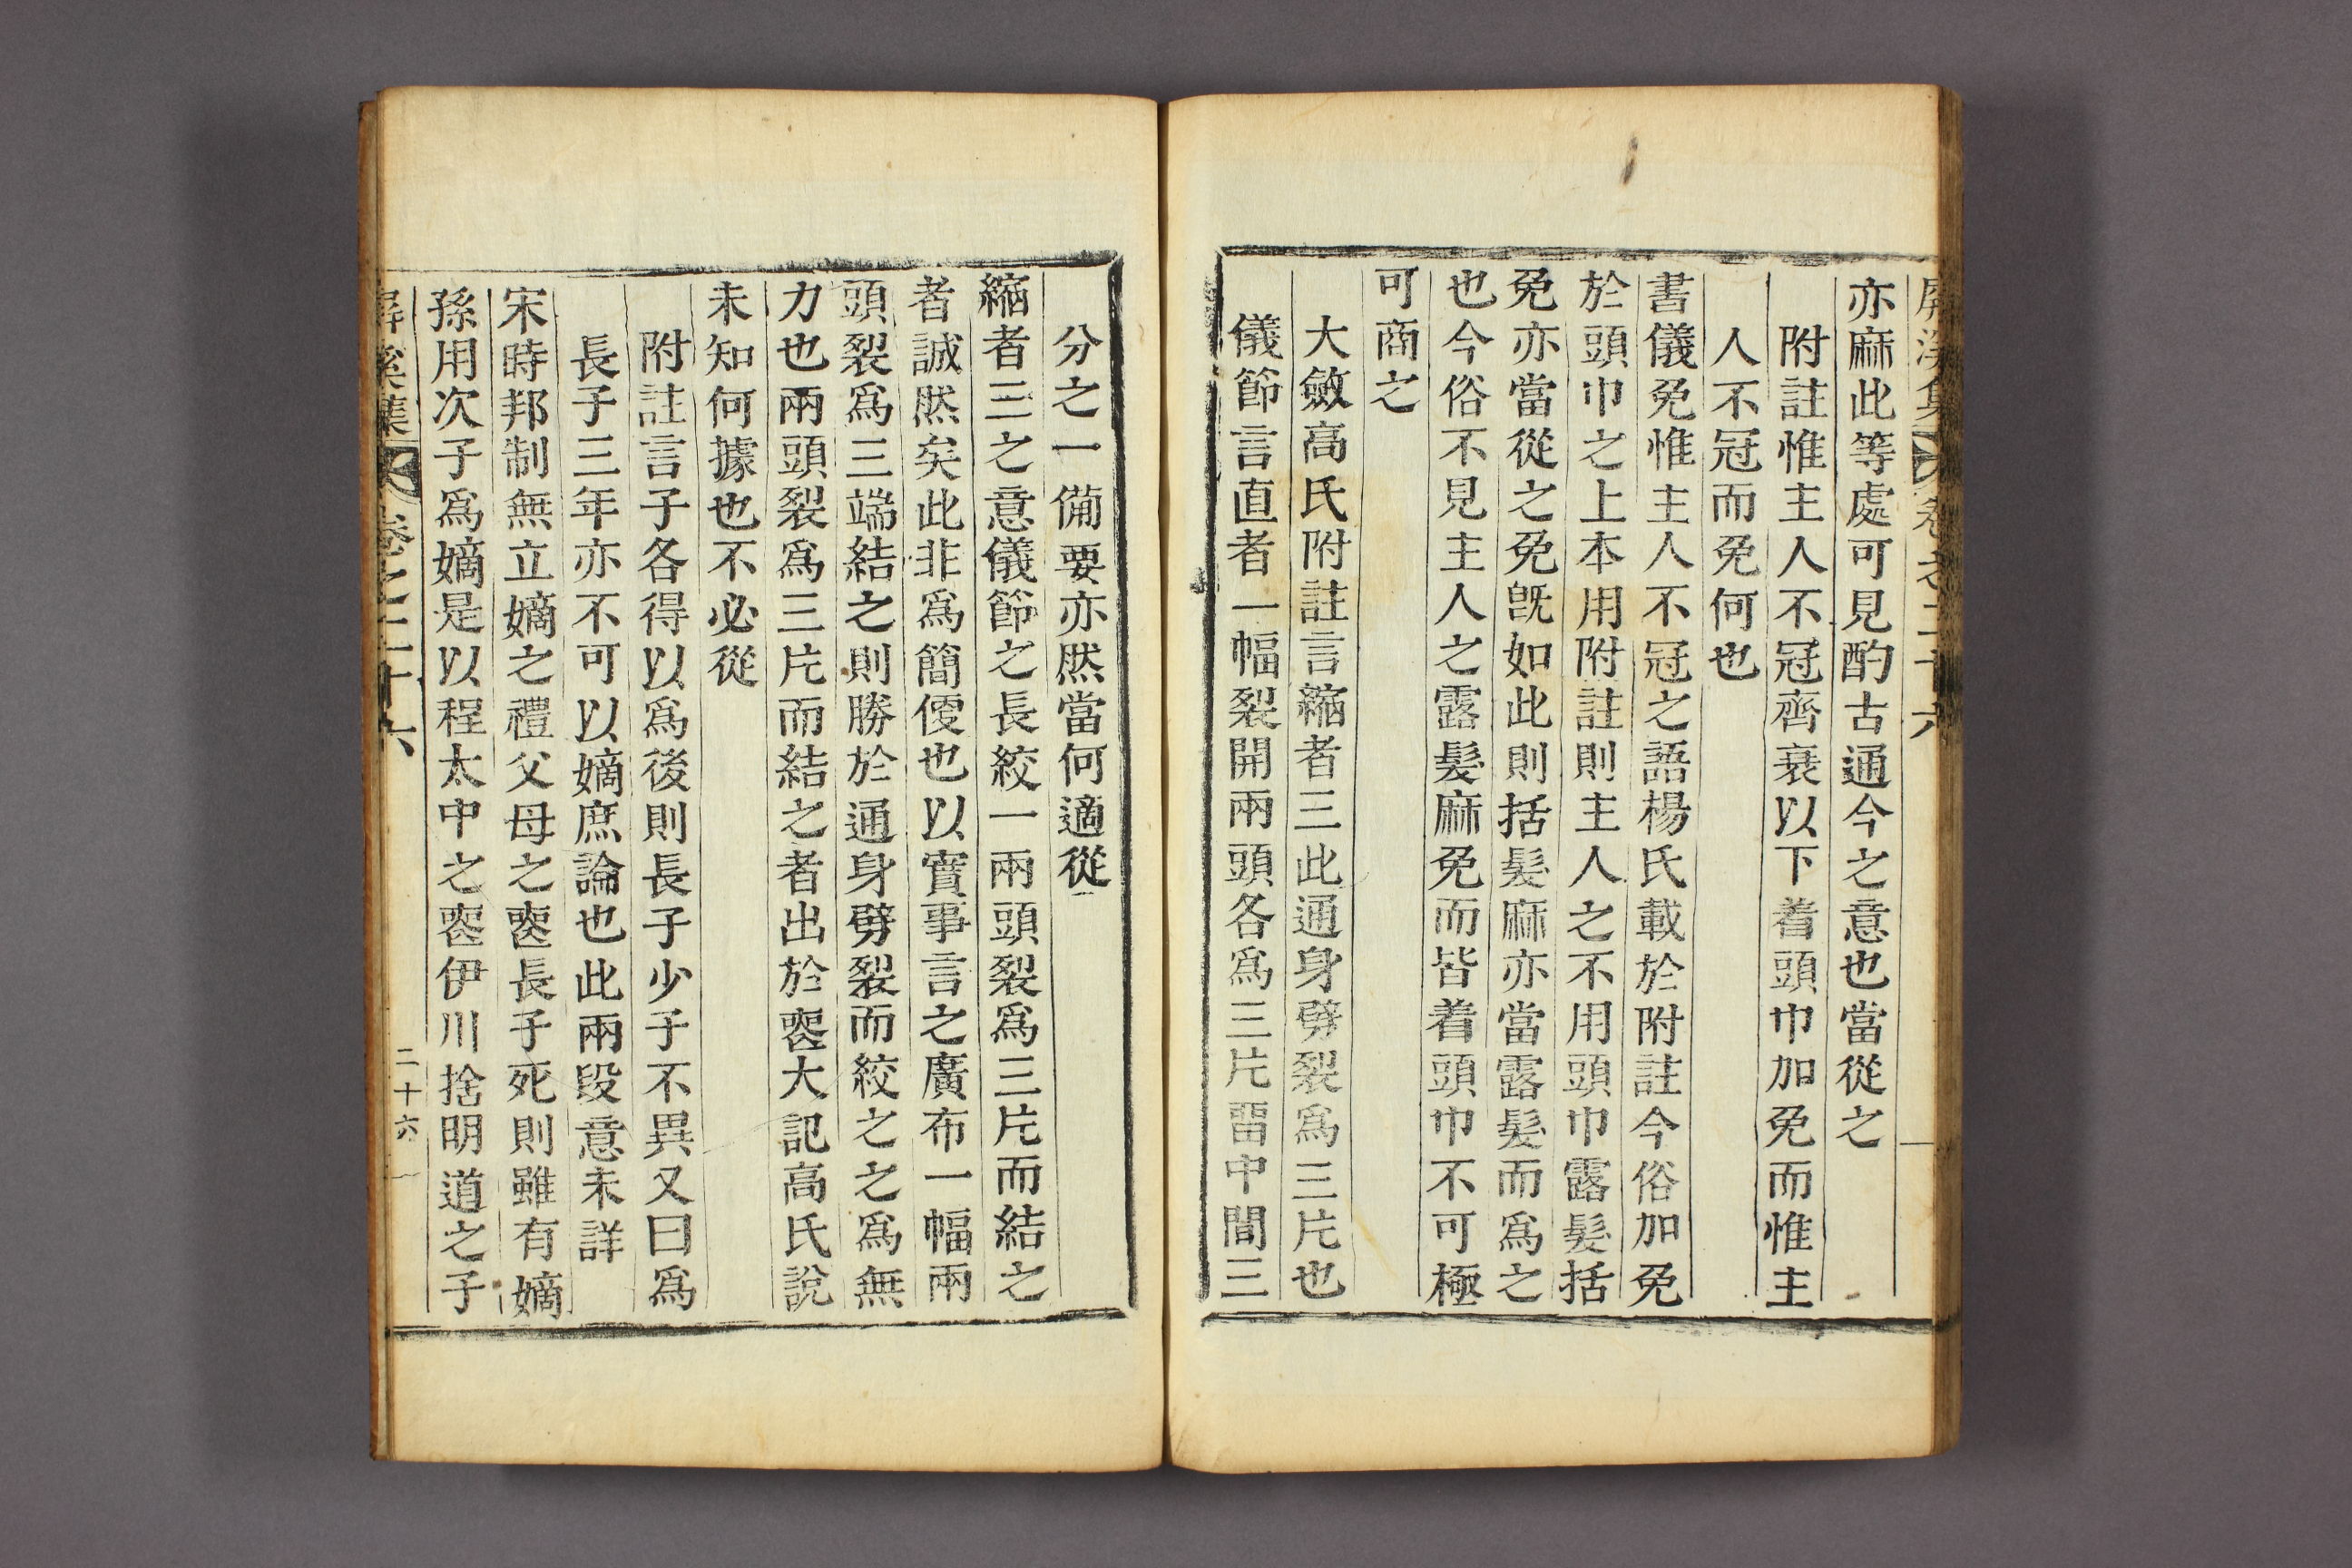 亦麻此等處可見酌古通今之意也當從之
附註惟主人不冠齊衰以下着頭巾加免而惟主
人不冠而免何也
書儀免惟主人不冠之語楊氏載於附註今俗加免
於頭巾之上本用附註則主人之不用頭巾露髮括
免亦當從之免旣如此則括髮麻亦當露髮而爲之
也今俗不見主人之露髮麻免而皆着頭巾不可極
可商之
大斂高氏附註言縮者三此通身劈裂爲三片也
儀節言直者一幅裂開兩頭各爲三片畱中間三
分之一備要亦然當何適從
縮者三之意儀節之長絞一兩頭裂爲三片而結之
者誠然矣此非爲簡便也以實事言之廣布一幅兩
頭裂爲三端結之則勝於通身劈裂而絞之之爲無
力也兩頭裂爲三片而結之者出於喪大記高氏說
未知何據也不必從
附註言子各得以爲後則長子少子不異又曰爲
長子三年亦不可以嫡庶論也此兩段意未詳
宋時邦制無立嫡之禮父母之喪長子死則雖有嫡
孫用次子爲嫡是以程太中之喪伊川捨明道之子
屛溪集 卷之二十六 二十六